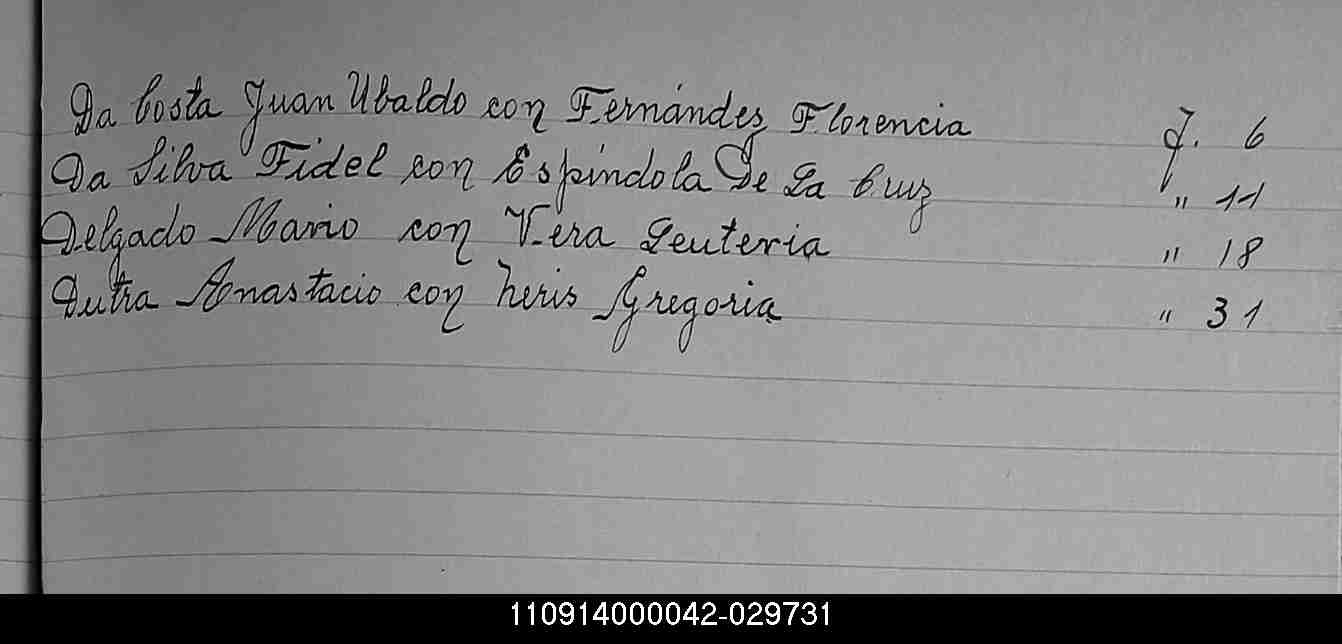 Da Costa Juan Ubaldo con Fernández Florencia f. 6
Da Silva Fidel con Espíndola De La Cruz " 11
Delgado Mario con Vera Leuteria " 18
Dutra Anastacio con Neris Gregoria " 31
110914000042-029731